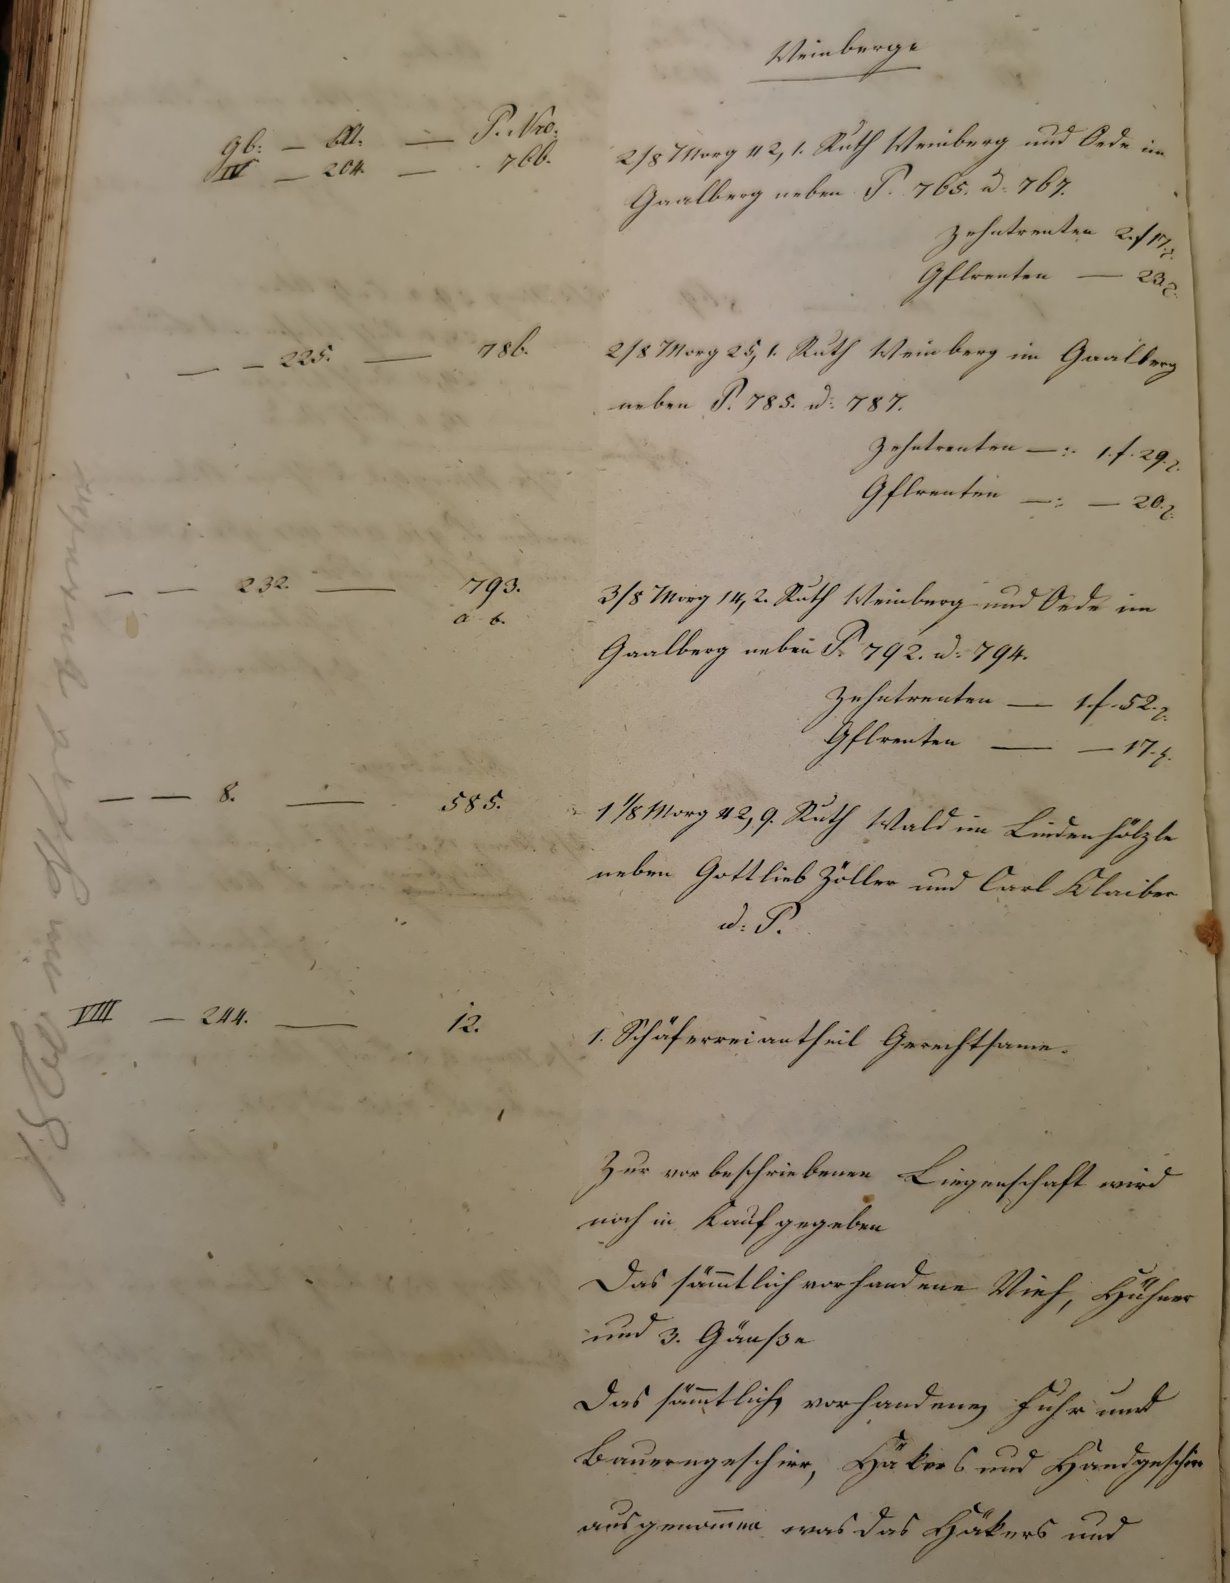 Weinberge
Gb: — Bl. — P. Nro.
IV — 204. — 766.
2/8 Morg 42,1. Ruth Weinberg und Oede im
Gaalberg neben P. 765. u. 767.
Zehntrenten 2 f 17.
Gflrenten — 23.
— — 225. — 786.
2/8 Morg 25,1. Ruth Weinberg im Gaalberg
neben P. 785. u. 787.
Zehntrenten —: 1. f. 29.
Gflrenten —: — 20.
— — 232. — 793.
a b.
3/8 Morg 14,2. Ruth Weinberg und Oede im
Gaalberg neben P. 792. u. 794.
Zehntrenten — 1. f. 52.
Gflrenten — — 17.
— — 8. — 585.
1 1/8 Morg 42,9. Ruth Wald im Lindenhölzle
neben Gottlieb Zoller und Carl Klaiber
u. P.
VIII — 244. — 12.
1. Schäfereiantheil Gerechtsame.
Zur vorbeschriebenen Liegenschaft wird
noch in Kauf gegeben
Das sämtlich vorhandene Vieh, Hühner
und 3. Gänße
Das sämtlich vorhandene Fuhr und
Bauerngeschirr, Häkers und Handgeschirr
ausgenommen was das Häkers und